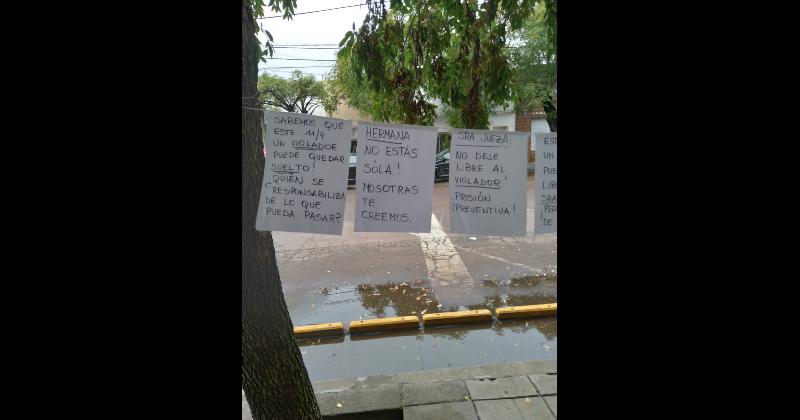 SABEMOS QUE
ESTE 11/4
UN VIOLADOR
PUEDE QUEDAR
SUELTO!
¿QUIÉN SE
RESPONSABILIZA
DE LO QUE
PUEDA PASAR?
HERMANA
NO ESTÁS
SÓLA!
NOSOTRAS
TE
CREEMOS.
SRA JUEZA
NO DEJE
LIBRE AL
VIOLADOR!
PRISIÓN
¡PREVENTIVA!
EST
UN
PUE
LIB
SRA
PER
¡DE